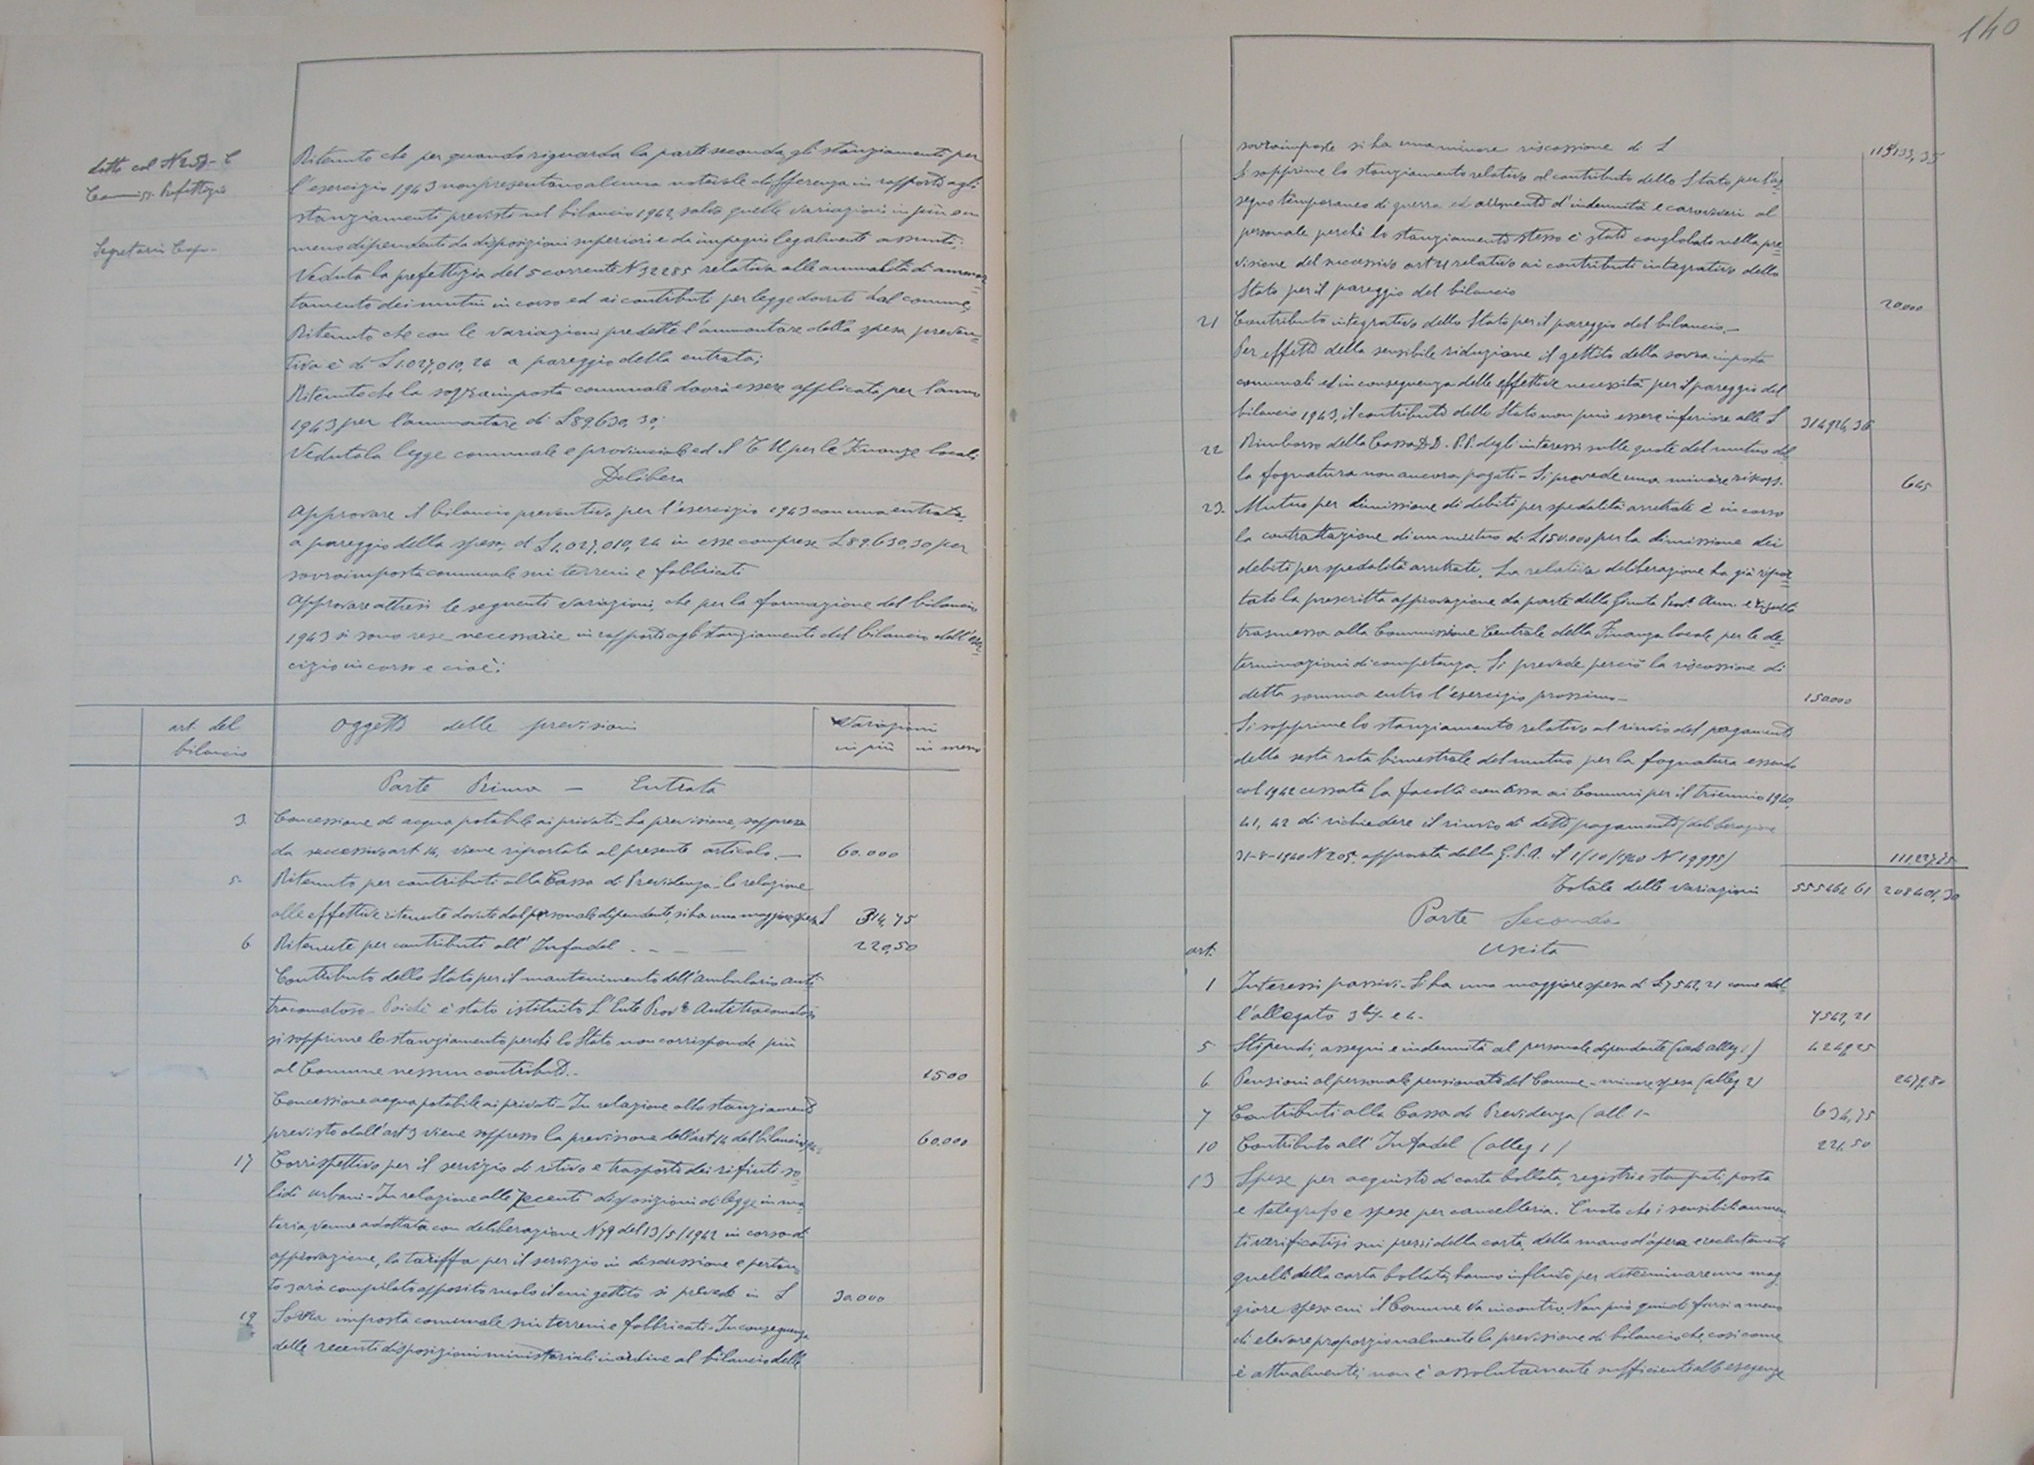 detto col N 258-C
Commiss. Prefettizio
Segretario Capo-
Ritenuto che per quando riguarda la parte seconda, gli stanziamenti per
l'esercizio 1943 non presentano alcuna notevole differenza in rapporto agli
stanziamenti previsti nel bilancio 1942, salvo quelle variazioni in più o in
meno dipendenti da disposizioni superiori e da impegni legalmente assunti;
Veduta la prefettizia del 5 corrente N 32285 relativa alle annualità di ammor=
tamento dei mutui in corso ed ai contributi per legge dovuti dal comune;
Ritenuto che con le variazioni predette l'ammontare della spesa preven=
tiva è di £ 1.027,010,24 a pareggio della entrata;
Ritenuto che la sovraimposta comunale dovrà essere applicata per l'anno
1943 per l'ammontare di £ 89.630,30;
Veduta la legge comunale e provinciale ed il T U per le Finanze locali
Delibera
Approvare il bilancio preventivo per l'esercizio 1943 con una entrata,
a pareggio della spesa, di £ 1.027,010,24 in esse comprese £ 89.630,30 per
sovraimposta comunale sui terreni e fabbricati
Approvare altresì le seguenti variazioni, che per la formazione del bilancio
1943 si sono rese necessarie in rapporto agli stanziamenti del bilancio dell'eser=
cizio in corso e cioè:
art. del bilancio
Oggetto delle previsioni
Variazioni
in più in meno
Parte Prima - Entrata
3. Concessione di acqua potabile ai privati - La previsione, soppressa
da successivo art 14, viene riportata al presente articolo. — 60.000
5- Ritenuto per contributi alla Cassa di Previdenza - la relazione
alle effettive ritenute dovute dal personale dipendente, si ha una maggiore spesa £ 314,75
6 Ritenute per contributi all'Infadel - - — 220,50
Contributo dello Stato per il mantenimento dell'ambulatorio anti
tracomatoso - Poichè è stato istituito l'Ente Prov. Antitracomatoso
si sopprime lo stanziamento perchè lo Stato non corrisponde più
al Comune nessun contributo.- 1500
Concessione acqua potabile ai privati - In relazione allo stanziamento
previsto dall'art 3 viene soppressa la previsione dell'art 14 del bilancio 60.000
17 Corrispettivo per il servizio di ritiro e trasporto dei rifiuti so=
lidi urbani - In relazione alle recenti disposizioni di legge in ma
teria, venne adottata con deliberazione N 79 del 13/5/1942 in corso di
approvazione, la tariffa per il servizio in discussione e pertan=
to sarà compilato apposito ruolo il cui gettito si prevede in £ 30.000
19 Sovra imposta comunale sui terreni e fabbricati - In conseguenza
delle recenti disposizioni ministeriali in ordine al bilancio della
140
sovraimposte si ha una minore riscossione di £ 115133,35
Si sopprime lo stanziamento relativo al contributo dello Stato per l'as=
segno temporaneo di guerra ed aumento d'indennità e caroviveri al
personale perchè lo stanziamento stesso è stato conglobato nella pre
visione del successivo art 21 relativo ai contributi integrativo dello
Stato per il pareggio del bilancio 20000
21 Contributo integrativo dello Stato per il pareggio del bilancio.-
Per effetto della sensibile riduzione il gettito della sovra imposta
comunali ed in conseguenza delle effettive necessità per il pareggio del
bilancio 1943, il contributo dello Stato non può essere inferiore alle £ 314926,36
22 Rimborso della Cassa DD. P.P. degli interessi sulle quote del mutuo del
la fognatura non ancora pagati - Si prevede una minore riscoss. 645
23. Mutuo per dimissione di debiti per spedalità arretrate è in corso
la contrattazione di un mutuo di £ 150.000 per la dimissione dei
debiti per spedalità arretrate. La relativa deliberazione ha già ripor=
tato la prescritta approvazione da parte della Giunta Prov. Amm.
trasmessa alla Commissione Centrale della Finanza locale per le de=
terminazioni di competenza. Si prevede perciò la riscossione di
detta somma entro l'esercizio prossimo - 150000
Si sopprime lo stanziamento relativo al rinvio del pagamento
della sesta rata bimestrale del mutuo per la fognatura essendo
col 1942 cessata la facoltà concessa ai Comuni per il triennio 1940,
41, 42 di richiedere il rinvio di detto pagamento (deliberazione
31-8-1940 N 205. approvata dalla G.P.A. il 1/10/1940 N 19995)
Totale delle variazioni 555462 61 208401,30
Parte Seconda
Uscita
art.
1 Interessi passivi - Si ha una maggiore spesa di £ 7562,21 come dal
l'allegato 3 e 4- 7562,21
5 Stipendi, assegni e indennità al personale dipendente (vedi alleg 1)
6 Pensioni al personale pensionato del Comune - minore spesa (alleg 2) 2479,80
7 Contributi alla Cassa di Previdenza (all 1- 634,75
10 Contributo all'Infadel (alleg 1) 221,50
13 Spese per acquisto di carta bollata, registri e stampati, posta
e telegrafo e spese per cancelleria. È noto che i sensibili aumen
ti verificatisi sui prezzi della carta, della mano d'opera
quelli della carta bollata, hanno influito per determinare una mag
giore spesa cui il Comune va incontro. Non può quindi farsi a meno
di elevare proporzionalmente la previsione di bilancio che, così come
è attualmente, non è assolutamente sufficiente alle esigenze